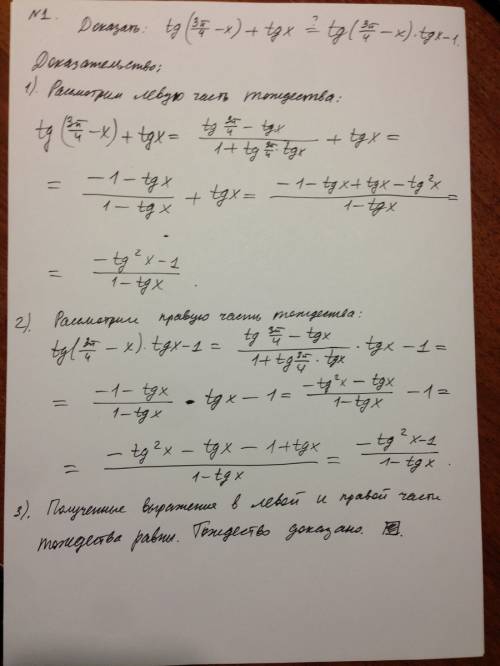 №1. Доказать: tg(3π/4 - x) + tgx ?= tg(3π/4 - x)·tgx-1.
Доказательство:
1). Рассмотрим левую часть тождества:
tg(3π/4 - x) + tgx = (tg 3π/4 - tgx)/(1 + tg 3π/4 · tgx) + tgx =
= (-1 - tgx)/(1 - tgx) + tgx = (-1 - tgx + tgx - tg²x)/(1 - tgx) =
= (-tg²x - 1)/(1 - tgx).
2). Рассмотрим правую часть тождества:
tg(3π/4 - x)·tgx-1 = (tg 3π/4 - tgx)/(1 + tg 3π/4 · tgx) · tgx - 1 =
= (-1 - tgx)/(1 - tgx) · tgx - 1 = (-tg²x - tgx)/(1 - tgx) - 1 =
= (-tg²x - tgx - 1 + tgx)/(1 - tgx) = (-tg²x-1)/(1 - tgx).
3). Полученные выражения в левой и правой части
тождества равны. Тождество доказано.